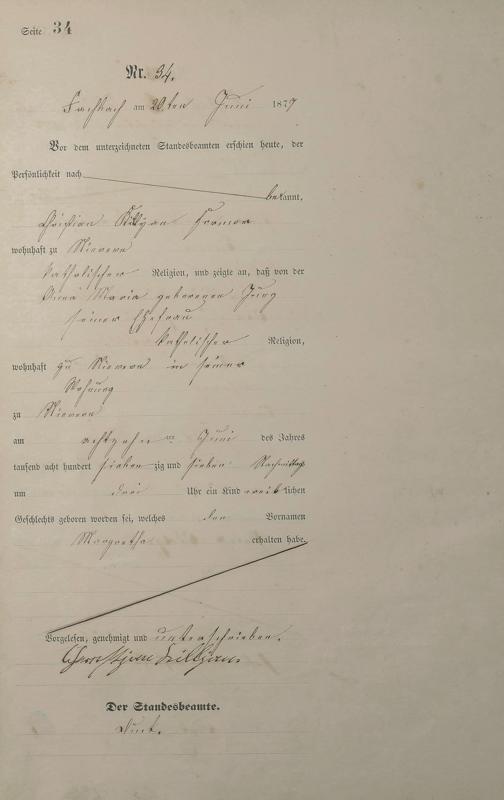 Seite 34
Nr. 34.
Fachbach am 20ten Juni 1877
Vor dem unterzeichneten Standesbeamten erschien heute, der
Persönlichkeit nach
bekannt,
Christian
wohnhaft zu Nievern
katholischer Religion, und zeigte an, daß von der
Anna Maria geborenen Jung
seiner Ehefrau
katholischer Religion,
wohnhaft zu Nievern in seiner
Wohnung
zu Nievern
am achtzehn ten Juni des Jahres
tausend acht hundert sieben zig und sieben Nachmittags
um drei Uhr ein Kind weiblichen
Geschlechts geboren worden sei, welches den Vornamen
Margaretha erhalten habe.
Vorgelesen, genehmigt und unterschrieben.
Der Standesbeamte.